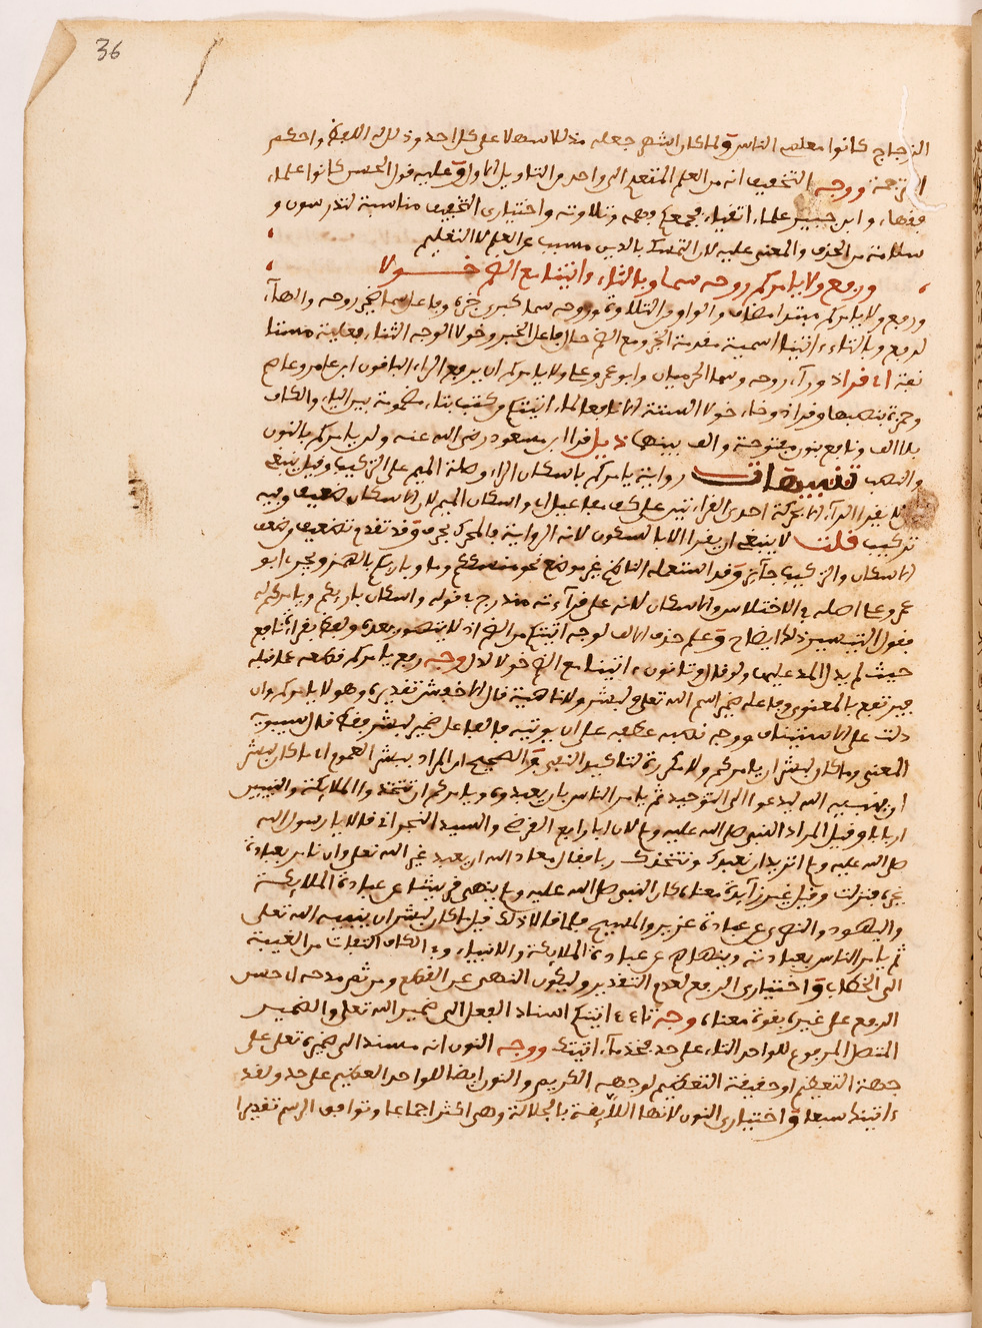 36
الزجاج كانوا معلمي الناس ولما كان الشهر جعله مذللا سهلا على كل احد وذلك اللفظ واحكم
الترجمة ووجه التخفيف انه من العلم المتعدي الى واحد من التاويل الاول وعليه قول الحسن كانوا علماء
فقهاء وابن جبير علماء اتقياء بجمعهم فهمه وتلاوته واختياري التخفيف مناسبة لتدرسون و
سلامة من الحذف والمعنى عليه لان التمسك بالدين مسبب عن العلم لا التعليم
ورفع ولا يامركم روحه سما وبالتاء ءاتينا مع الضم خولا
ورفع ولا يامركم مبتدا مضاف والواو من التلاوة وروحه سما كبرى خبره وفاعل سما ضمير روحه والهاء
لرفع وبالتاء ءاتينا اسمية مقدمة الخبر ومع الضم حال فاعل الخبر وخولا الوجه الثناء فعلية مستا
نفة ا فراد ورا روحه وسما الحرميان وابو عمرو وعلي ولا يامركم ان برفع الراء الباقون ابن عامر وعاصم
وحمزة بنصبها وفراد وخاء خولا الستة الا نافعا لما اتيتكم من كتب بتاء مضمومة بين الياء والكاف
بلا الف ونافع بنون مفتوحة والف بينهما ذيل قرا ابن مسعود رضي الله عنه ولن يامركم بالنون
والنصب تنبيهات رواية يامركم باسكان الراء وصلة الميم على التركيب وقيل ينبغي
ان لا يقرا الراء الا بحركة احدى القراءتين على كف مفاعيلن واسكان الميم لان الاسكان ضعيف وفيه
تركيب قلت لا ينبغي ان يقرا الا بالسكون لانه الرواية فالمحرك محرف وقد تقدم تضعيف وضعف
الاسكان والتركيب جائز وقد استعمله الناظم في موضع نحو منسككم وما وبارئكم بالهمز ويجري ابو
عمرو على اصله في الاختلاس والاسكان لانه على قراءته مندرج في قوله واسكان بارئكم ويامركم له
فقول التيسير ذلك ايضاح وعلم حذف الالف لوجه اتيتكم من الضم اذ لا يتصور بعده ولفظ بقراءة نافع
حيث لم يدل الضد عليها ولو قال وتا نون ءاتينا مع الضم خولا لدل وجه رفع يامركم قطعه عما قبله
فيرتفع بالمعنوي وفاعله ضمير اسم الله تعالى او لبشر ولا ناهية قال الاخفش تقديره وهو لا يامركم وان
دلت على الاستيناف ووجه نصبه عطفه على ان يوتيه فالفاعل ضمير لبشر فقط قال سيبويه
المعنى وما كان لبشر ان يامركم ولا مكررة لتاكيد النفي والصحيح ان المراد ببشر العموم اي ما كان لبشر
ان ينبيه الله ليدعوا الى التوحيد ثم يامر الناس بان يعبدوه ويامركم ان تتخذوا الملائكة والنبيين
اربابا وقيل المراد النبي صلى الله عليه وسلم لان ابا رافع القرظي والسيد النجراني قالا يا رسول الله
صلى الله عليه وسلم اتريد ان نعبدك ونتخذك ربا فقال معاذ الله ان يعبد غير الله تعالى وان نامر بعبادة
غيره فنزلت وقيل غير زائدة معناه كان النبي صلى الله عليه وسلم ينهى قريشا عن عبادة الملائكة
واليهود والنصرى عن عبادة عزير والمسيح فلما قالا ذلك قيل ما كان لبشر ان ينبيه الله تعلى
ثم يامر الناس بعبادته وينهاهم عن عبادة الملائكة والانبياء وفي الكاف التفات من الغيبة
الى الخطاب واختياري الرفع لعدم التقدير وليكون النهي عن القطع ومن ثم مدحه اي حسن
الرفع على غيره بقوة معناه وجه تاء اتيتكم اسناد الفعل الى ضمير الله تعلى والضمير
المتصل المرفوع للواحد التاء على حد فخذ ما اتيتك ووجه النون انه مسند الى ضميره تعلى على
جهة التعظيم او حقيقة التعظيم لوجهه الكريم والنون ايضا للواحد العظيم على حد ولقد
ءاتينك سبعا واختياري النون لانها اللائقة بالجلالة وهي اكثر اجماعا وتوافق الرسم تقديرا